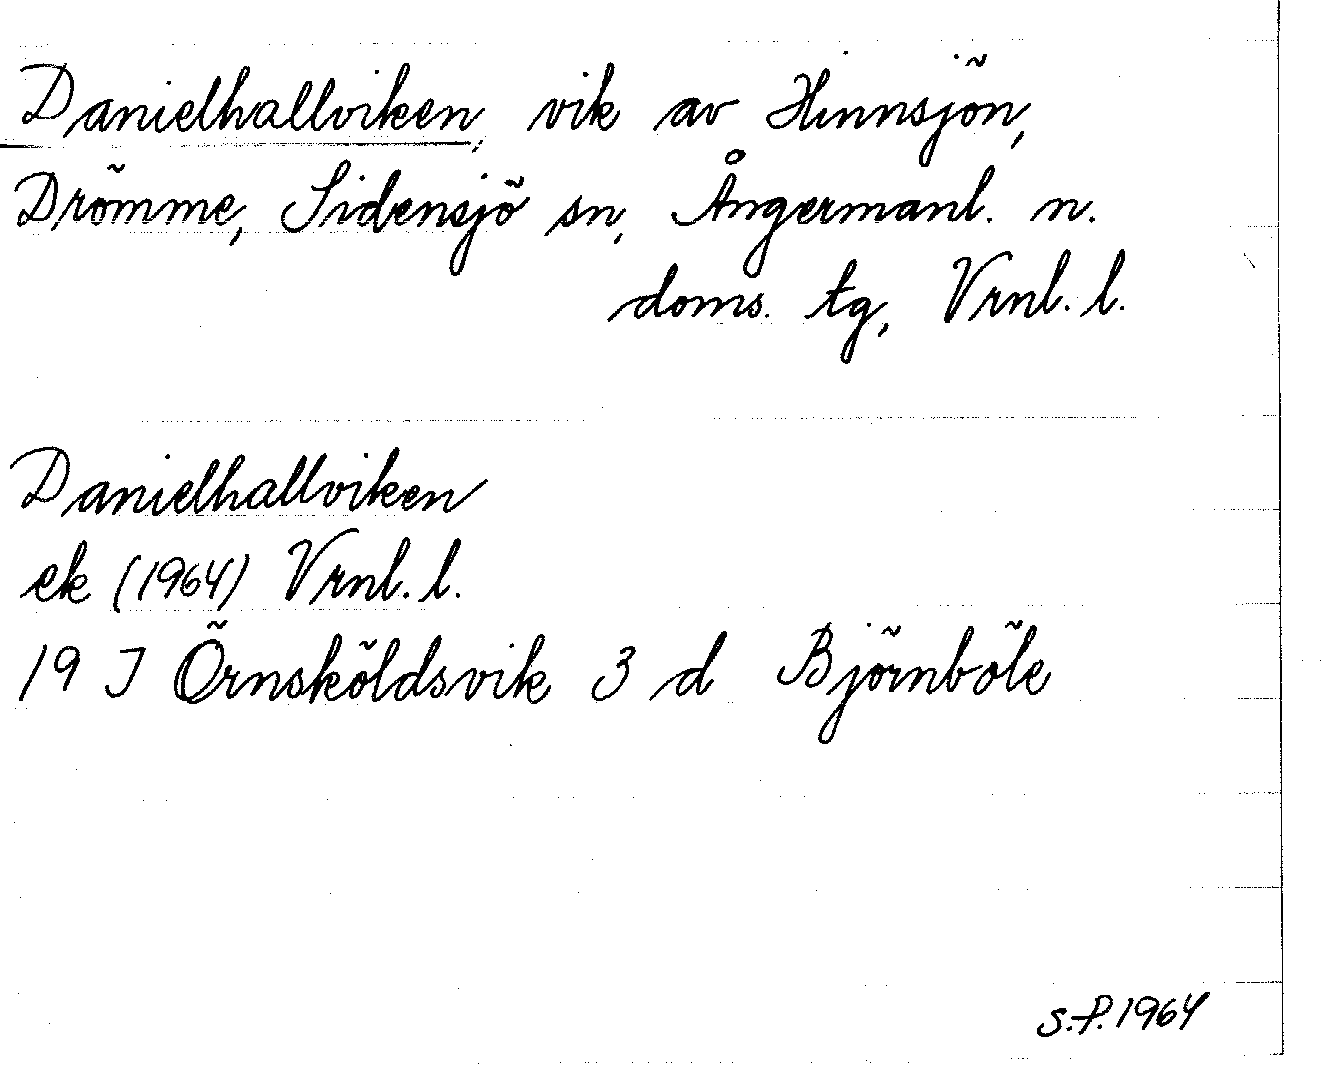 Danielhallviken, vik av Hinnsjön,
Drömme, Sidensjö sn, Ångermanl. n.
doms. tg, Vrnl. l.
Danielhallviken
ek (1964) Vrnl. l.
19 J Örnsköldsvik 3 d Björnböle
S.P. 1964